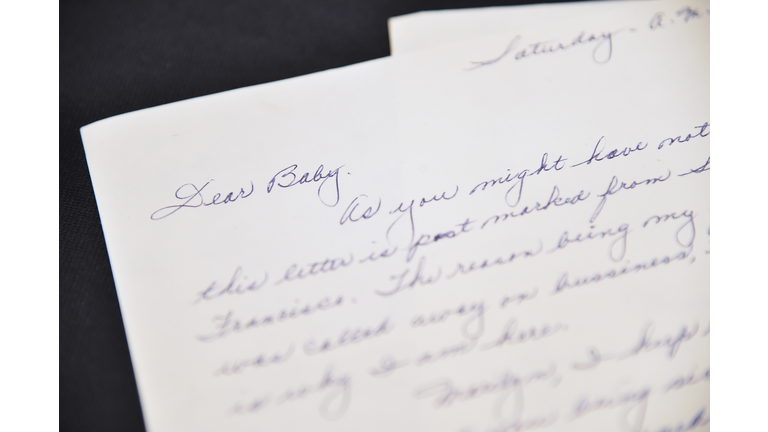 Saturday - A.M.
Dear Baby.
As you might have not
this letter is post marked from S
Francisco. The reason being my
was called away on bussiness,
is why I am here.
Marilyn, I kept
being